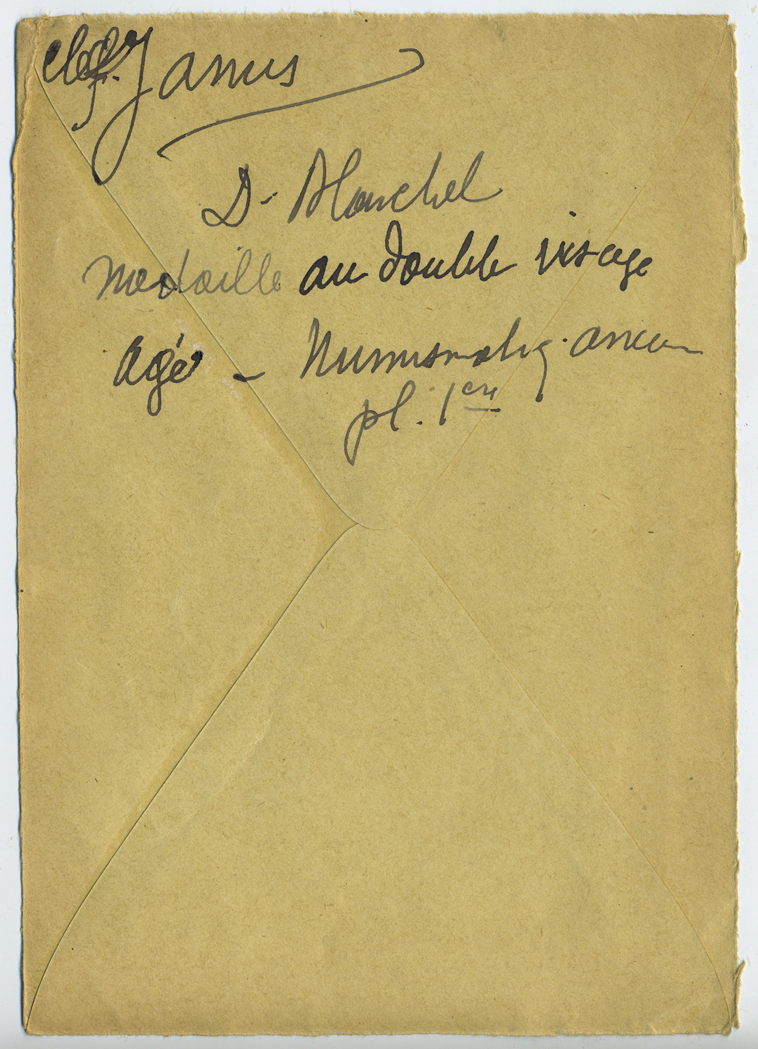 Janus
D- Blanchel
médaille au double visage
âgé - Numismatiq. ancien
pl. 1en